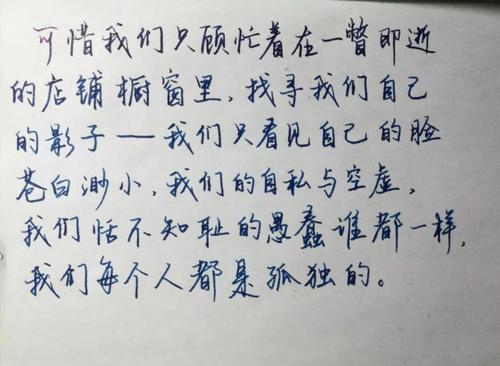 可惜我们只顾忙着在一瞥即逝
的店铺橱窗里,找寻我们自己
的影子——我们只看见自己的脸
苍白渺小,我们的自私与空虚,
我们恬不知耻的愚蠢谁都一样,
我们每个人都是孤独的。